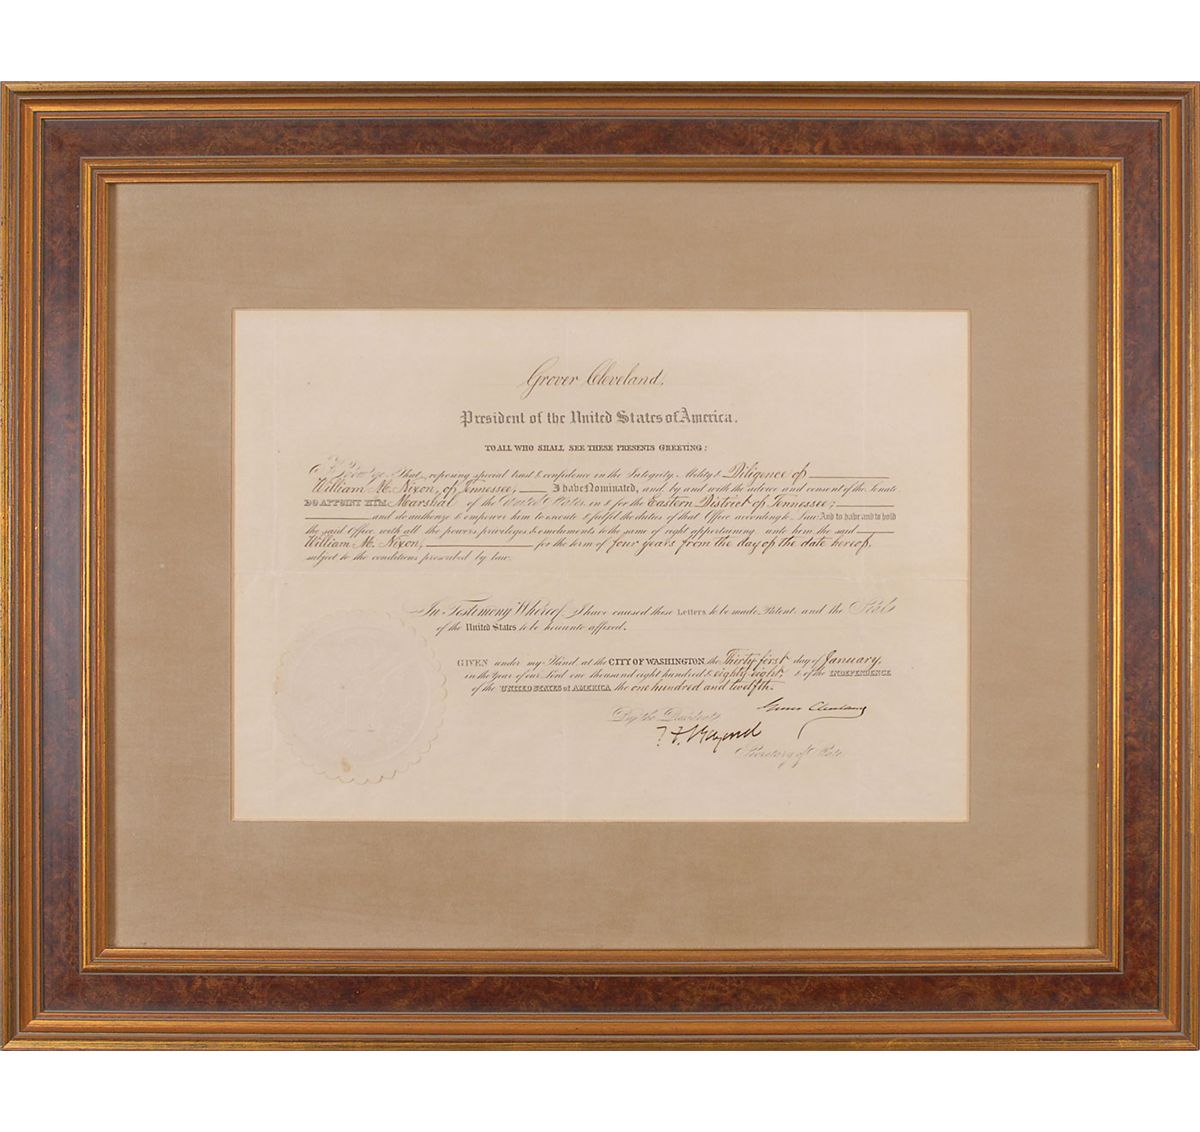 Grover Cleveland,
President of the United States of America.
TO ALL WHO SHALL SEE THESE PRESENTS GREETING:
Know Ye, That, reposing special trust & confidence in the Integrity Ability & Diligence of
William M. Nixon, of Tennessee, I have Nominated, and, by and with the advice and consent of the Senate
DO APPOINT HIM Marshal of the United States in & for the Eastern District of Tennessee;
and do authorize & empower him to execute & fulfil the duties of that Office according to Law: And to have and to hold
the said Office with all the powers privileges & emoluments to the same of right appertaining unto him the said
William M. Nixon, for the term of four years from the day of the date hereof,
subject to the conditions prescribed by law.
In Testimony Whereof, I have caused these Letters to be made Patent and the Seal
of the United States to be hereunto affixed.
GIVEN under my Hand, at the CITY OF WASHINGTON, the Thirty first day of January,
in the Year of our Lord one thousand eight hundred & eighty-eight, & of the INDEPENDENCE
of the UNITED STATES of AMERICA the one hundred and twelfth.
Grover Cleveland
By the President:
T. F. Bayard
Secretary of State.